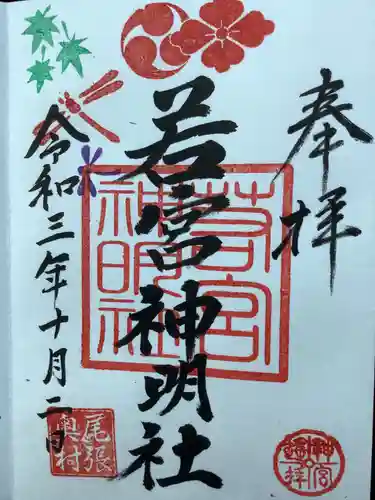 奉拝
若宮神明社
若宮
神明社
令和三年十月二日
尾張
奥村
神宮
遥拝